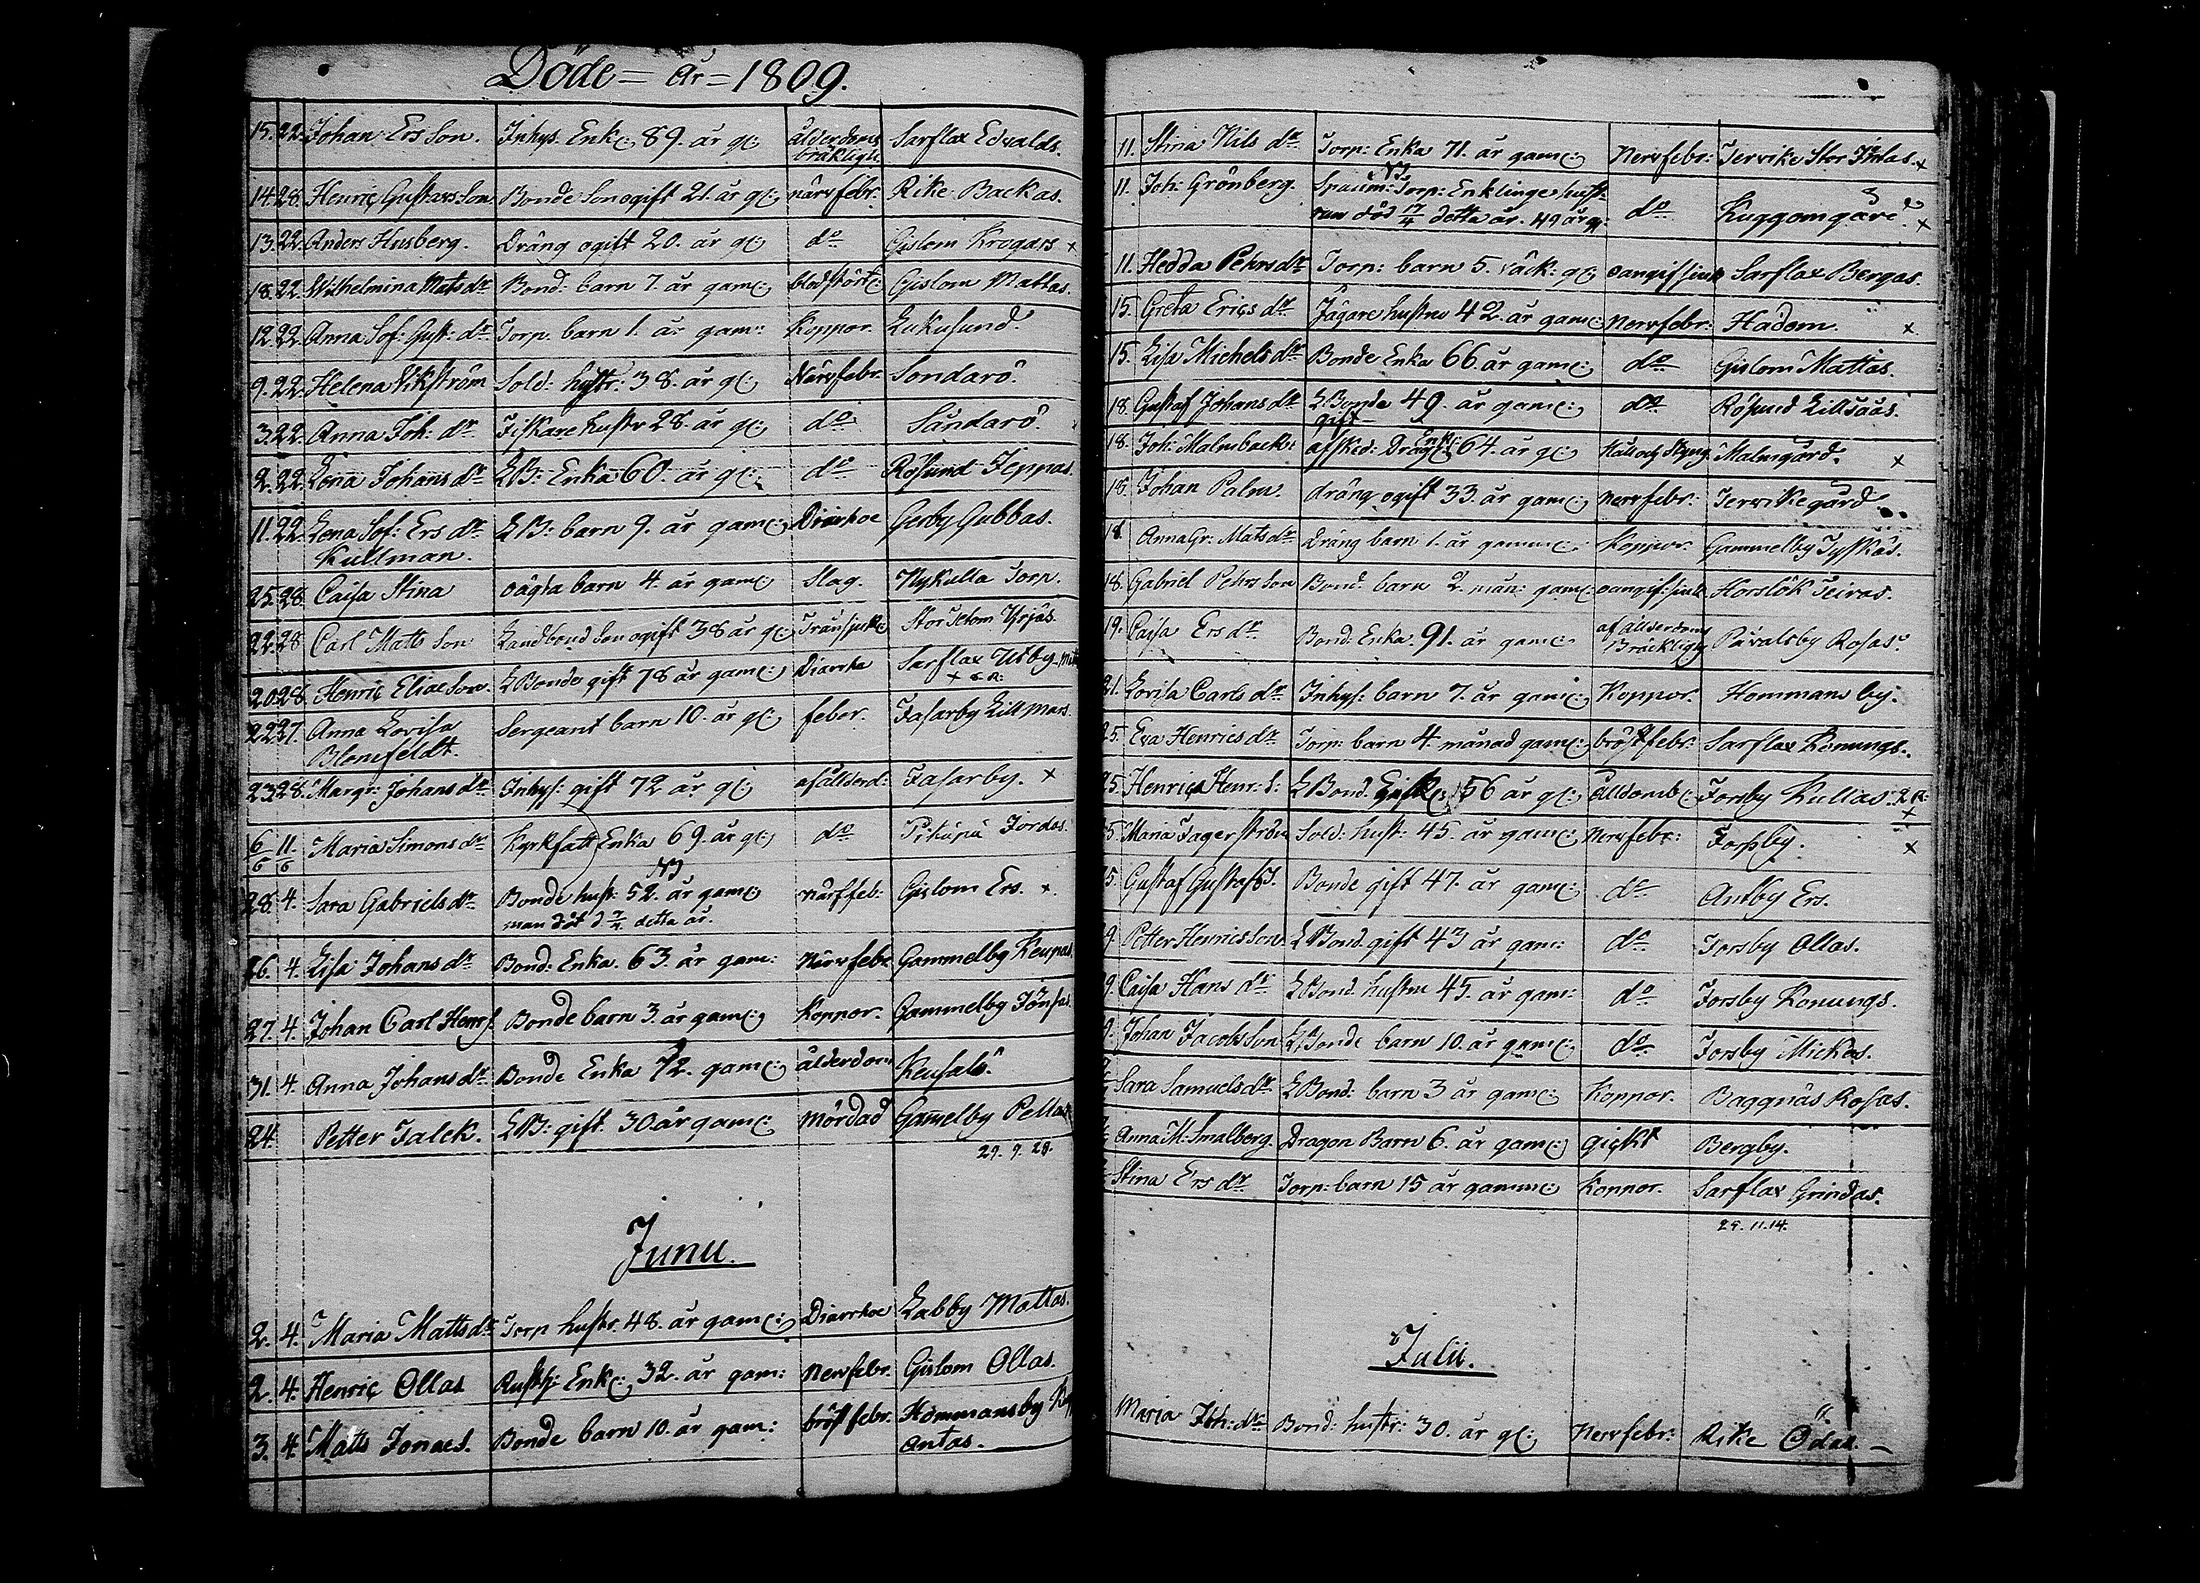 Döde = år = 1809.
15. 22. Johan Ers Son. Inhys. Enk: 89. år g: ålderdoms bräklighe Sarflax Edvalds.
14. 28. Henric Gustavs: Son Bonde Son ogift 21. år g: närvfebr: Rike Backas.
13. 22. Anders Husberg. Dräng ogift 20. år g: do Gislom Krogars x
18. 22. Wilhelmina Mats dr Bond: barn 7. år gam: blodstört: Gislom Mattas.
12. 22. Anna Sof: Gust: dr Torp. barn 1. år gam: Koppor. Lukusund.
9. 22. Helena Wikström Sold: hustr: 38. år g: Närvfebr. Sondarö.
3. 22. Anna Joh: dr Fiskare hustr 28. år g: do Sandarö.
2. 22. Lena Johans dr LB: Enka 60. år g: do Rösund Jeppas.
11. 22. Lena Sof: Ers dr LB: barn 9. år gam: Diarrhoe Gerby Gubbas.
Kullman.
25. 28. Caisa Stina oägta barn 4. år gam: slag. Nykulla Torp.
22. 28 Carl Matts Son Landbond Son ogift 38 år g: Tränsjuk: Stor Sctom Yrjäs.
20. 28. Henric Eliae Son. LBonde gift 78 år gam: Diarrha Sarflax Utby
22. 27. Anna Lovisa Sergeant barn 10. år g: feber. Fasarby Lillmars.
Blomfeldt.
23. 28. Margr: Johans dr Inhys: gift 72 år g: af ållderd: Fasarby. x
6/6 11/6 Maria Simons dr Kyrkfatt Enka 69. år g: do Pitkäpä Jordas.
28. 4. Sara Gabriels dr Bonde hust: 52. år gam: närffeb: Gislom Ers. x
man död d detta år.
26. 4. Lisa Johans dr Bond: Enka. 63. år gam: Närvfebr Gammelby Keupas
27. 4. Johan Carl Henr S. Bonde barn 3. år gam: Koppor. Gammelby Jönsas
31. 4. Anna Johans dr Bonde Enka 72. gam: ålderdom Keusalö.
24. Petter Falck. LB: gift. 30. år gam: Mördad Gamelby Pellas
29. 9. 20.
Junii.
2. 4. Maria Matts dr Torp hustr. 48. år gam: Diarrhoe Labby Mattas.
2. 4. Henric Ollas Rusth: Enk: 32. år gam: Nervfebr. Gislom Ollas.
3. 4 Matts Jonae S. Bonde barn 10. år gam: bröst febr. Hommansby
Antas.
11. Stina Nils dr Torp: Enka 71. år gam: Nervfebr: Tervike Stor x
11. Joh: Grönberg. Torp: Enklinge hust-
run död 17/4 detta år. 49 år g: do Kuggomgård x
11. Hedda Pehrs dr Torp: barn 5. väck: g: oangifsjuk Sarflax Bergas.
15. Greta Erics dr Jägare hustru 42. år gam: Nervfebr: Hadom. x
15. Lisa Michels dr Bonde Enka 66. år gam: do Gislom Mattas.
18. Gustaf Johans dr LBonde 49. år gam: do Rösund Lillsäas.
gift
18. Joh: Malmback: afsked: Drag: Enkl: 64. år g: Håll och Styng Malmgård. x
18. Johan Palm. dräng ogift 33. år gam: Nervfebr: Tervike gård
18. Anna Gr: Mats dr Dräng barn 1. år gamm: Koppor. Gammelby Tyskas.
18. Gabriel Pehrs Son Bond: barn 2. mån: gam: oangif: sjuk Horslök Teiras.
19. Caisa Ers dr Bond: Enka. 91. år gam: af ållderdoms Bräcklighe Pävalsby Rosas.
21. Lovisa Carls dr Inhys: barn 7. år gam: Koppor. Hommansby.
25. Eva Henrics dr Torp: barn 4. månad gam: bröstfebr: Sarflax Konungs.
25. Henric Henr: S: LBond. Gift 56 år g: Forsby Kullas. x
25. Maria Jagerström Sold: hust: 45. år gam: Nervfebr: Forsby. x
25. Gustaf Gustafs S. Bonde gift 47. år gam: do Antby Ers.
29. Petter Henrics Son LBond. gift 43 år gam: do Forsby Ollas.
29. Caisa Hans dr LBond. hustru 45. år gam: do Forsby Konungs.
29. Johan Jacobs Son LBonde barn 10. år gam: do Forsby Mickos.
Sara Samuels dr LBond: barn 3 år gam: Koppor. Baggnäs Rosas.
Anna M: Smalberg. Dragon Barn 6. år gam: gickt Bergby.
Stina Ers dr Torp: barn 15 år gamm: Koppor. Sarflax Grindas.
25. 11. 14.
Julii.
Maria Joh: dr Bond: hustr: 30. år g: Nervfebr: Rike Ödas. –